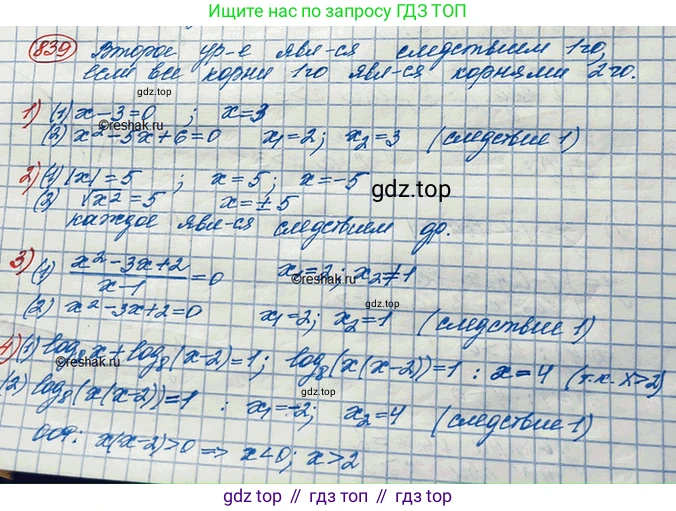 Ищите по запросу ГДЗ ТОП
839 Второе ур-е явл-ся следствием 1го,
если все корни 1го явл-ся корнями 2го.
gdz.top
1) (1) x-3=0 ; x=3
©reshak.ru
(2) x²-5x+6=0 x₁=2; x₂=3 (следствие 1)
2) (1) |x|=5 ; x=5; x=-5
gdz.top
(2) √x²=5 x=±5
каждое явл-ся следствием др.
3) (1) (x²-3x+2)/(x-1)=0 x₁=2; x₂≠1
©reshak.ru
gdz.top
(2) x²-3x+2=0 x₁=2; x₂=1 (следствие 1)
4) (1) log₈x+log₈(x-2)=1; log₈(x(x-2))=1 : x=4 (т.к. x>2)
©reshak.ru
(2) log₈(x(x-2))=1 : x₁=-2; x₂=4 (следствие 1)
ООФ: x(x-2)>0 => x<0; x>2
gdz.top // гдз.топ // gdz.top // гдз.топ